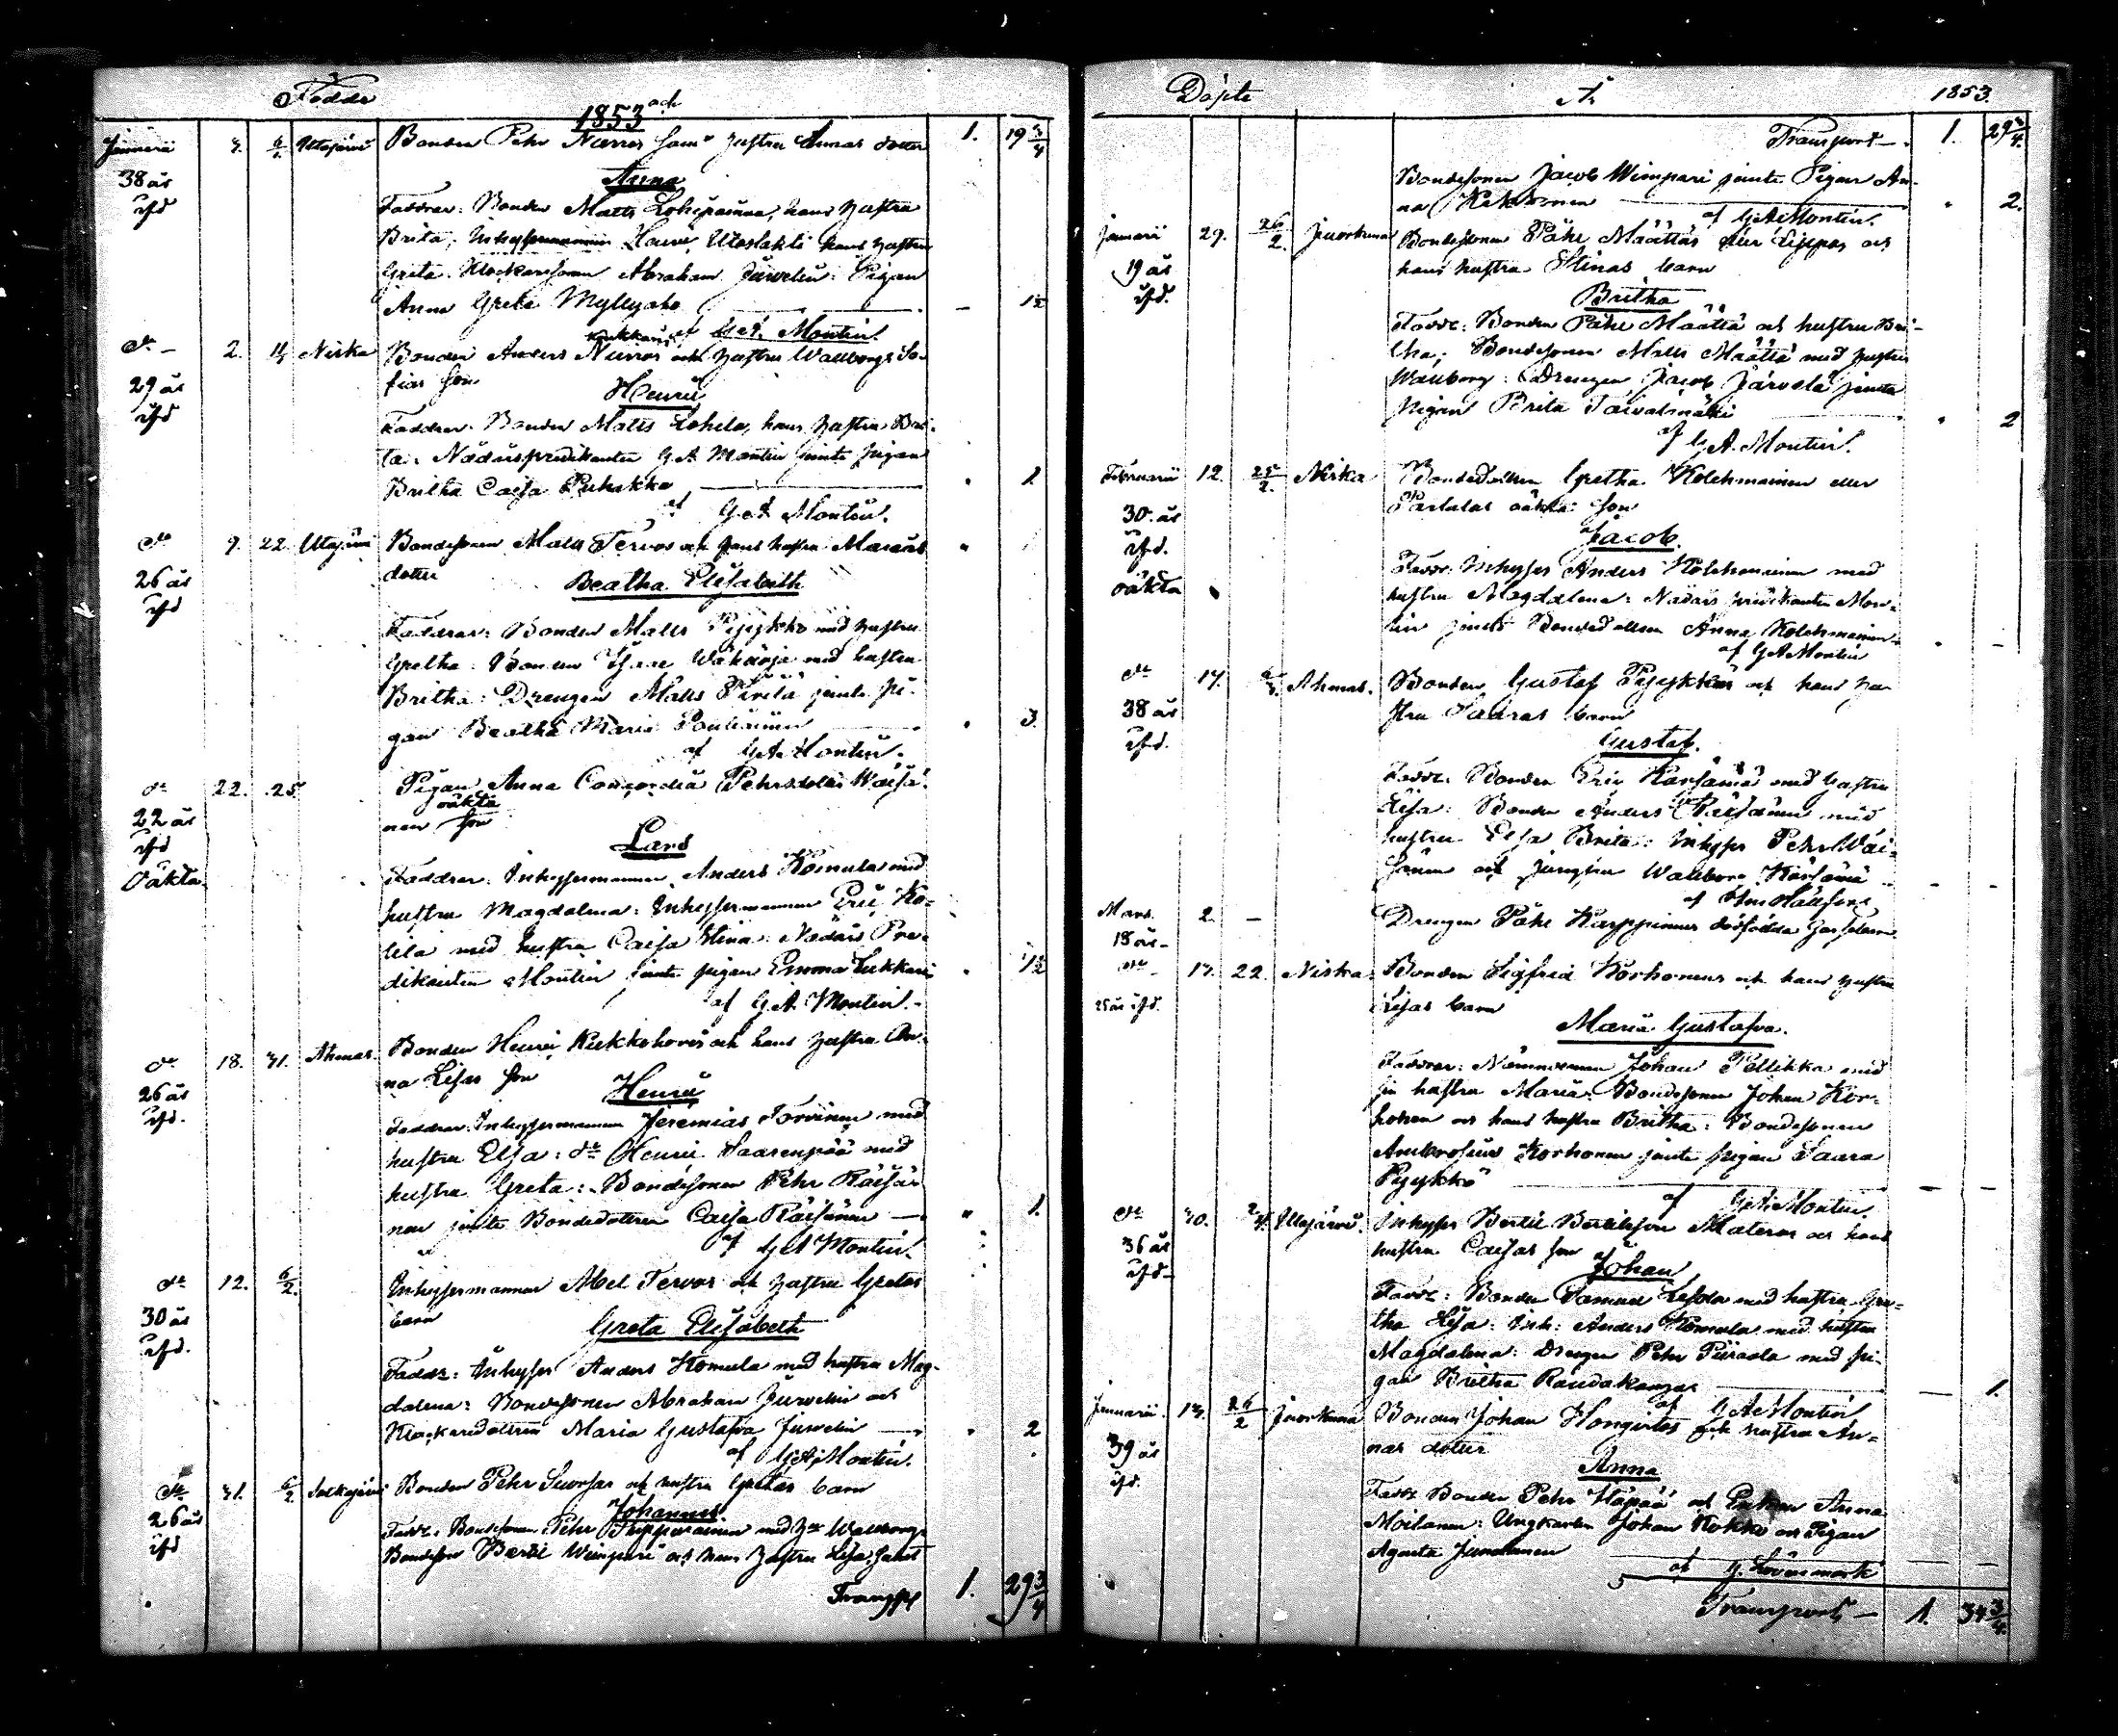 Födde
1853 och
Januarii 3. 6/1. Utajärvi Bonden Pehr Nurros samt hustru Annas dotter 1. 19 3/4
38 år
Anna
ifd
Faddrar: Bonden Matts Lohipaima, hans hustru
Brita, Inhyses Henric Utoslahti hans hustru
Greta. Klockarsonen Abraham Juvelin: Pigan
Anna Greta Myllyaho — 1½
af G A. Montin.
dito 2. Niska Bonden Anders Nurros och hustru Wallborgs So-
fias son
29 år
ifd
Henric
Faddrar: Bonden Matts Lohela, hans hustru Bri-
ta: Nådårspredikanten G A Montin jemte pigan
Britha Caisa Puhakka 1
af G A Montin.
dito 9. 22. Utajärvi Bondesonen Matts Tervos och hans hustru Marias
dotter
26 år
ifd
Beatha Elisabeth
Faddrar: Bonden Matts Pyykkö med hustru
Gretha: Bonden Isaac Wähäoja med hustru
Britha: Drengen Matts Pirilä jemte pi-
gan Beatha Maria 3.
af G A Montin.
dito 22. 25. Pigan Anna Concordia Pehrsdotter Wäisä-
oäkta
nen son
22 år
ifd
Oäkta
Lars
Faddrar: Inhysesmannen Anders Komula med
hustru Magdalena: Inhysesmannen Eric Ko-
lila med hustru Caisa Stina: Nådårs Pre-
dikanten Montin jemte pigan Emma Lukkari 1½
af G A. Montin.
dito 18. 31. Ahmas. Bonden Henric Kukkohovis och hans hustru An-
na Lisas son
26 år
ifd.
Henric
Faddrar: Inhysesmannen Jeremias Torvinen med
hustru Elsa: dito Henric Saarenpää med
hustru Greta: Bondesonen Pehr Räisä-
nen jemte Bondedottren Caisa Räisänen 1.
af G A Montin.
dito 12. 6/2. Inhysesmannen Abel Tervos och hustru Gretas
barn
30 år
ifd.
Greta Elisabeth
Faddr: Inhyses Anders Komula med hustru Mag-
dalena: Bondesonen Abraham Juvelin och
Klockaredottren Maria Gustafva Juvelin 2
af G A Montin.
dito 31. 6/2 Sotkajärvi Bonden Pehr Suorsas och hustru Gretas barn
Johannes.
26 år
ifd
Faddr: Bondesonen Pehr med hu Wallborg:
Bondeson Bertil Wimpari och hans hustru Lisa, samt
Transport 1. 29 3/4
Döpte År 1853.
Transport — 1. 29 3/4.
Bondesonen Jacob Wimpari jemte Pigan An-
na Kakkonen 2.
af G A Montin.
Januarii 29. 26/2. Juorkuna Bondesonen Påhl Määttäs eller Lippos och
hans hustru Stinas barn
19 år
ifd.
Britha
Faddr: Bonden Påhl Määttä och hustru Bri-
tha; Bondesonen Matts Määttä med hustru
Wallborg: Drengen Jacob Järvelä jemte
pigan Brita Taivalmäki 2
af G A. Montin.
Februarii 12. 25/2. Niska Bondedottren Gretha Kolehmainen eller
oäkta son
30. år
ifd.
oäkta
Jacob.
Faddr: Inhyses Anders Kolehmainen med
hustru Magdalena: Nådårs predikanten Mon-
tin jemte Bondedottren Anna Kolehmainen
af G A Montin
dito 17. Ahmas. Bonden Gustaf Pyykkös och hans hu-
stru Sauras barn
38 år
ifd.
Gustaf.
Faddr: Bonden Eric Kärsämä med hustru
Lisa: Bonden Anders Räisänen med
hustru Elsa Brita: Inhyses Pehr Wäi-
sänen och Jungfru Wallborg Kärsämä
Mars. 2. — Drengen Påhl Karppinens dödfödda
18 år
dito 17. 22. Niska. Bonden Sigfrid Korhonens och hans hustru
Lisas barn
25 år ifd.
Maria Gustafva.
Faddrar: Nämndeman Johan Pellikka med
sin hustru Maria. Bondesonen Johan Kor-
honen och hans hustru Britha: Bondesonen
Ambrosius Korhonen jemte pigan Saara
Pyykkö
af G A Montin.
dito 30. Utajärvi. Inhyses Bertil Bertilsson Materos och hans
hustru Caisas son
36 år
ifd
Johan
Faddr: Bonden Samuel med hustru Gre-
tha Lisa: Inh: Anders Komula med hustru
Magdalena: Drengen Pehr Piirola med pi-
gan Britha Raudakangas 1.
af G A Montin
Januarii. 13. 26/2 Juorkuna Bonden Johan Hongistos och hustru An-
nas dotter
39 år
ifd.
Anna
Faddr Bonden Pehr och Enkan Anna
Moilanen: Ungkarlen Johan Kokko och Pigan
Agneta
af
Transport — 1. 34 3/4.